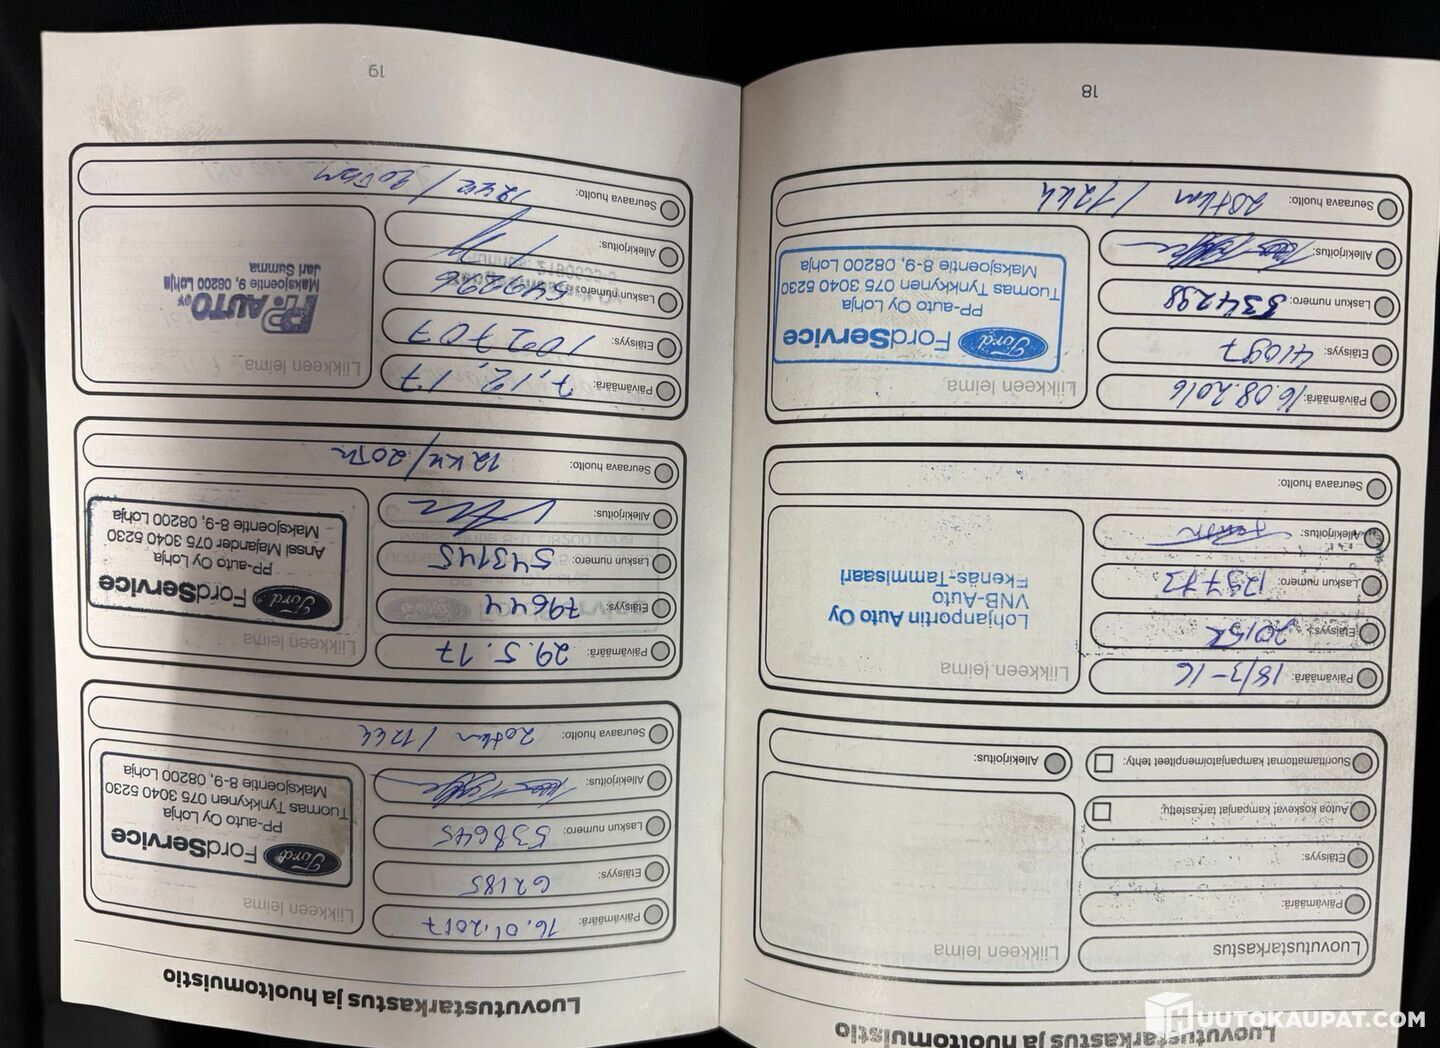 Luovutustarkastus ja huoltomuistio
Luovutustarkastus
Päivämäärä:
Etäisyys:
Autoa koskevat kampanjat tarkastettu:
Suorittamattomat kampanjatoimenpiteet tehty:
Liikkeen leima
Allekirjoitus:
Päivämäärä: 18/3-16
Etäisyys:
Laskun numero: 123773
Allekirjoitus:
Seuraava huolto:
Liikkeen leima
Lohjanportin Auto Oy
VNB-Auto
Ekenäs-Tammisaari
Päivämäärä: 16.08.2016
Etäisyys: 41097
Laskun numero: 534298
Allekirjoitus:
Seuraava huolto: 20tkm / 12kk
Liikkeen leima
Ford FordService
PP-auto Oy Lohja
Tuomas Tynkkynen 075 3040 5230
Maksjoentie 8-9, 08200 Lohja
18
Luovutustarkastus ja huoltomuistio
Päivämäärä: 16.01.2017
Etäisyys: 62185
Laskun numero: 538645
Allekirjoitus:
Seuraava huolto: 20tkm / 12kk
Liikkeen leima
Ford FordService
PP-auto Oy Lohja
Tuomas Tynkkynen 075 3040 5230
Maksjoentie 8-9, 08200 Lohja
Päivämäärä: 29.5.17
Etäisyys: 79644
Laskun numero: 543145
Allekirjoitus:
Seuraava huolto: 12kk/20T
Liikkeen leima
Ford FordService
PP-auto Oy Lohja
Anssi Majander 075 3040 5230
Maksjoentie 8-9, 08200 Lohja
Päivämäärä: 7.12.17
Etäisyys: 102707
Laskun numero: 549296
Allekirjoitus:
Seuraava huolto: 12kk / 20Tkm
Liikkeen leima
PP-AUTO OY
Jari Summa
Maksjoentie 9, 08200 Lohja
19
HUUTOKAUPAT.COM